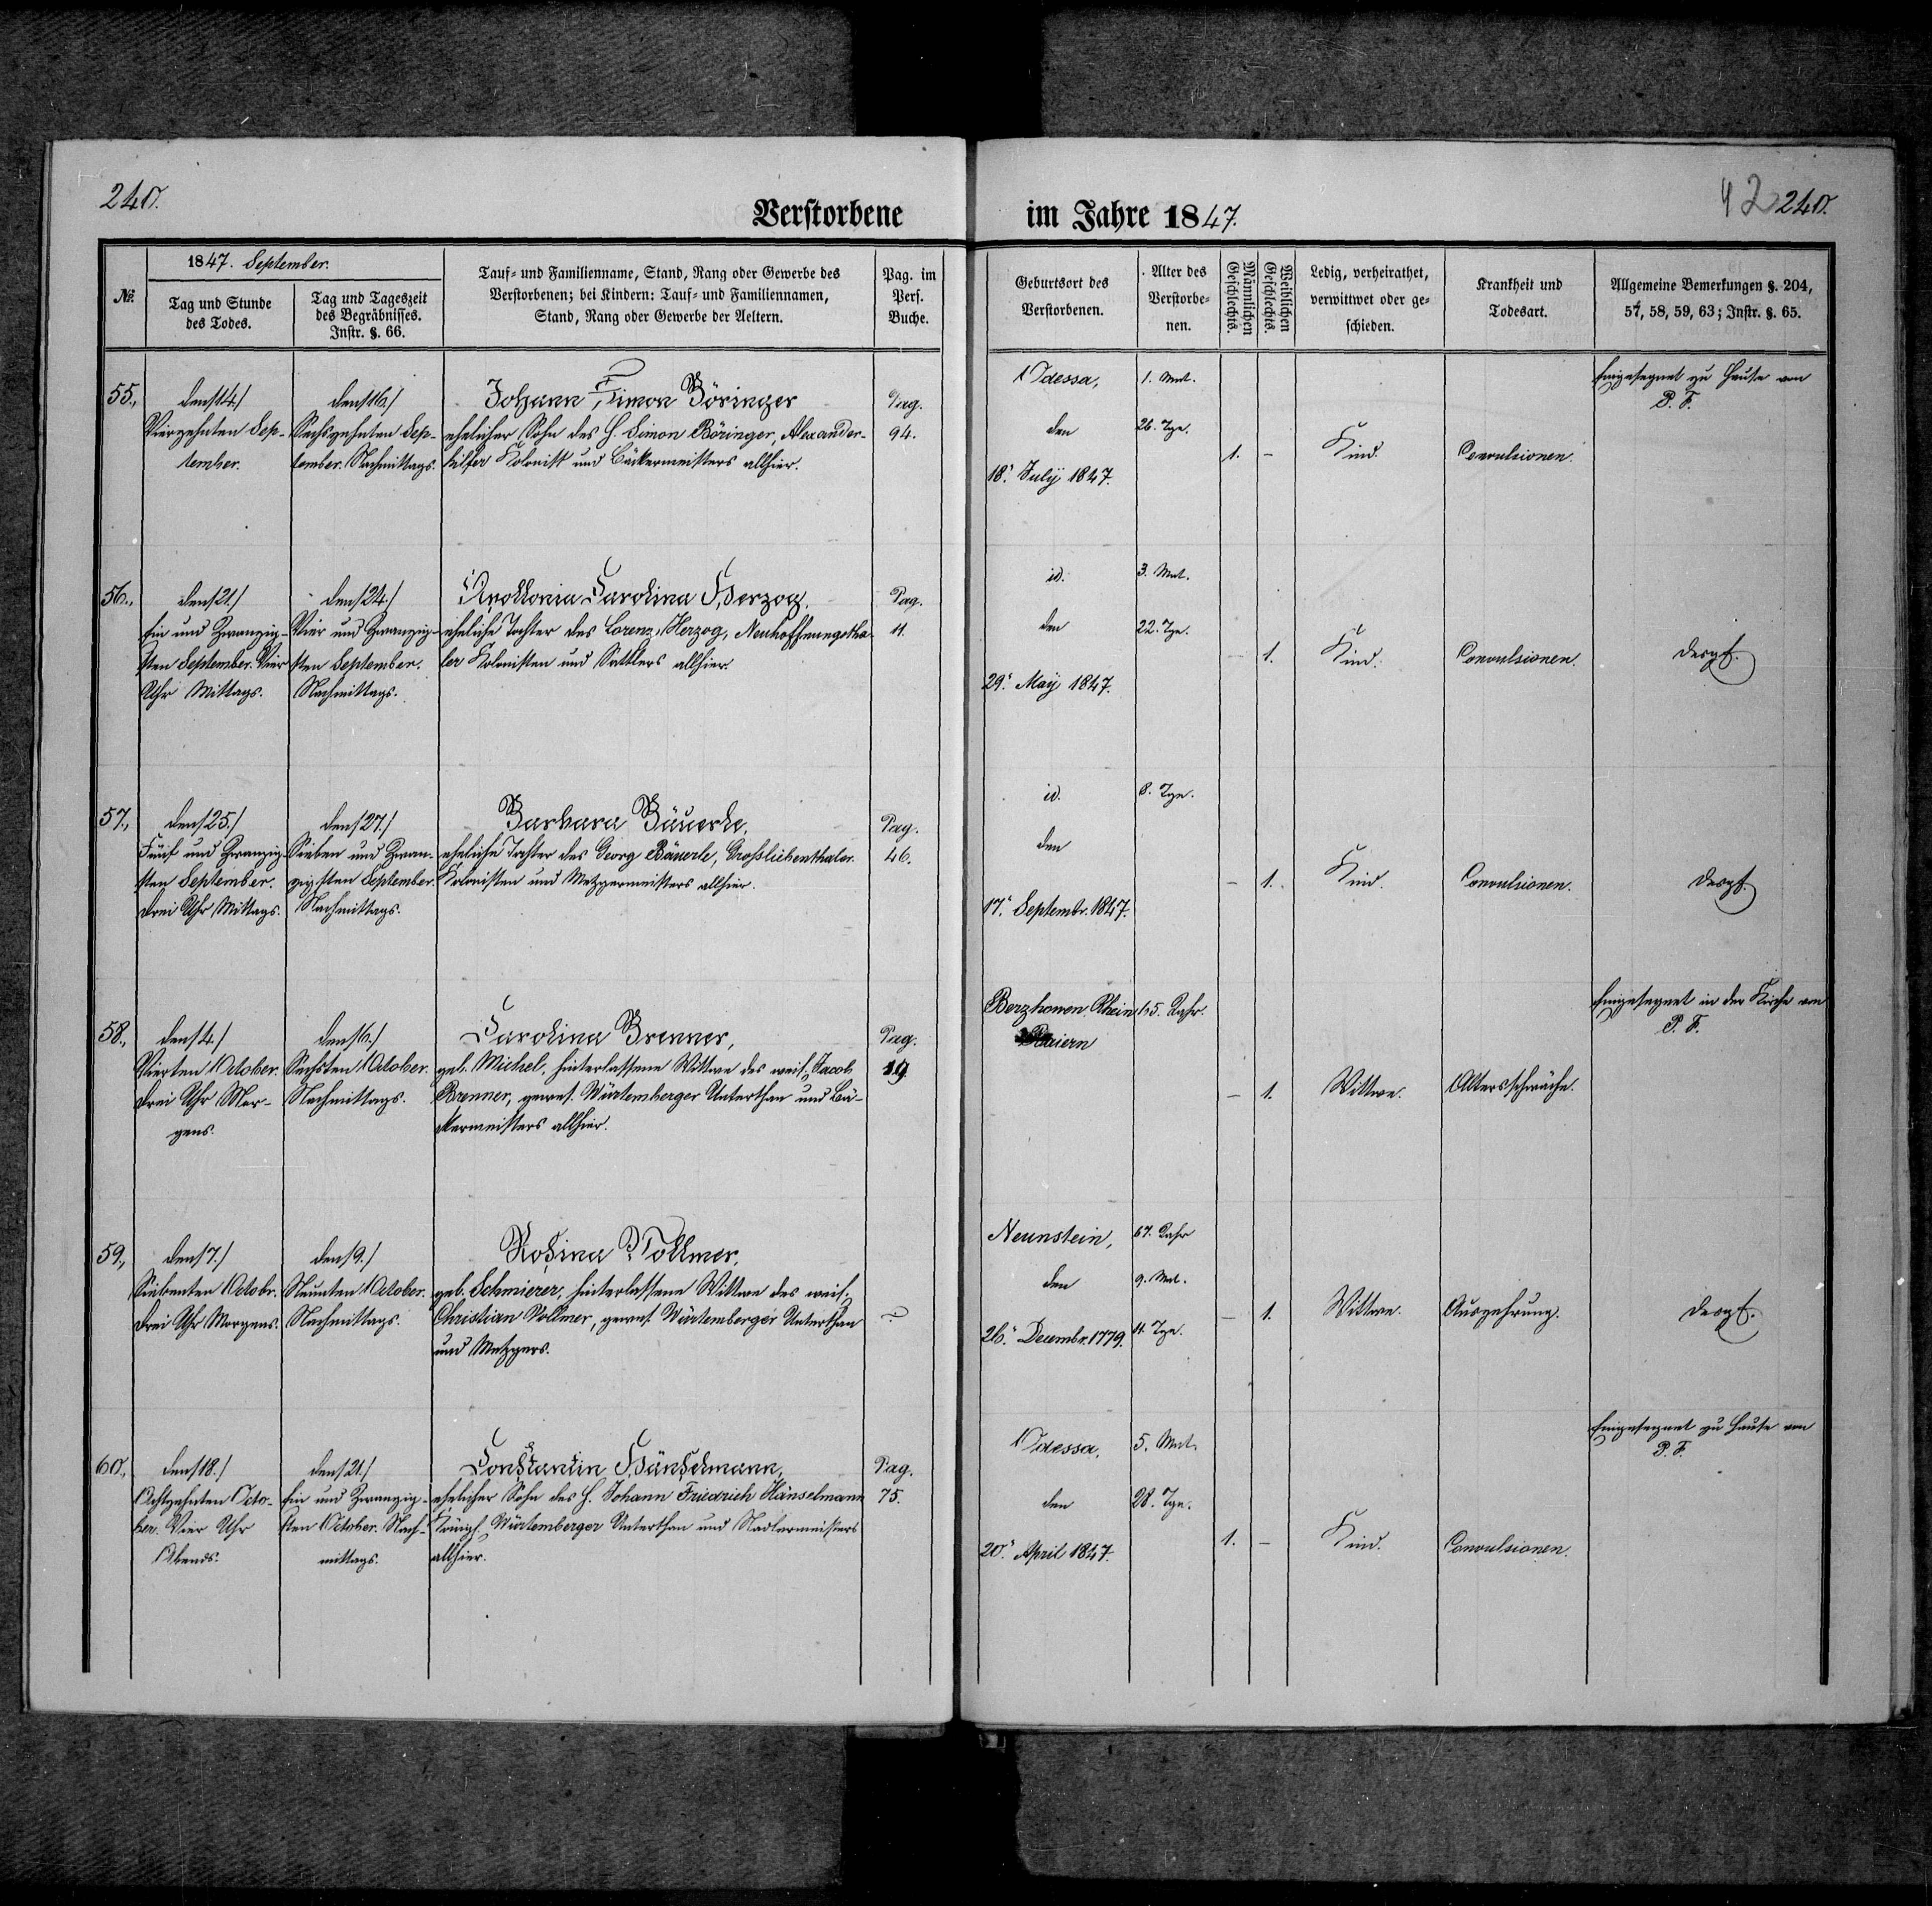 240.
Verstorbene
1847. September.
№.
Tag und Stunde
des Todes.
Tag und Tageszeit
des Begräbnisses.
Instr. §. 66.
Tauf- und Familienname, Stand, Rang oder Gewerbe des
Verstorbenen; bei Kindern: Tauf- und Familiennamen,
Stand, Rang oder Gewerbe der Aeltern.
Pag. im
Pers.
Buche.
55.,
den /14./
Vierzehnten Sep-
tember.
den /16./
Sechszehnten Sep-
tember. Nachmittags.
Johann Simon Böringer
ehelicher Sohn des H. Simon Böringer, Alexander-
hilfer Kolonist und Bäckermeisters allhier.
Pag.
94.
56.,
den /21./
Ein und Zwanzig-
sten September. Vier
Uhr Mittags.
den /24./
Vier und Zwanzig-
sten September.
Nachmittags.
Apollonia Carolina Herzog,
eheliche Tochter des Lorenz Herzog, Neuhoffnungstha-
ler Kolonisten und Sattlers allhier.
Pag.
11.
57.,
den /25./
Fünf und Zwanzig-
sten September.
Drei Uhr Mittags.
den /27./
Sieben und Zwan-
zigsten September.
Nachmittags.
Barbara Bäuerle,
eheliche Tochter des Georg Bäuerle, Großliebenthaler
Kolonisten und Metzgermeisters allhier.
Pag.
46.
58.,
den /4./
Vierten October.
Drei Uhr Mor-
gens.
den /6./
Sechsten October.
Nachmittags.
Carolina Brenner,
geb. Michel, hinterlassene Wittwe des weil. Jacob
Brenner, gewes. Würtemberger Unterthan und Bä-
ckermeisters allhier.
Pag.
19
59.,
den /7./
Siebenten Octobr.
Drei Uhr Morgens.
den /9./
Neunten October.
Nachmittags.
Rosina Vollmer,
geb. Schmierer, hinterlassene Wittwe des weil.
Christian Vollmer, gewes. Würtemberger Unterthan
und Metzgers.
60.,
den /18./
Achtzehnten Octo-
ber. Vier Uhr
Abends.
den /21./
Ein und Zwanzig-
sten October. Nach-
mittags.
Constantin Hänselmann,
ehelicher Sohn des H. Johann Friedrich Hänselmann
Königl. Würtemberger Unterthan und Nadlermeisters
allhier.
Pag.
75.
im Jahre 1847.
42 240.
Geburtsort des
Verstorbenen.
Alter des
Verstorbe-
nen.
Männlichen
Geschlechts.
Weiblichen
Geschlechts.
Ledig, verheirathet,
verwittwet oder ge-
schieden.
Krankheit und
Todesart.
Allgemeine Bemerkungen §. 204,
57, 58, 59, 63; Instr. §. 65.
Odessa,
den
18. July 1847.
1. Mnt.
26. Tge.
1.
–
Kind.
Convulsionen.
Eingesegnet zu Hause von
P. F.
id.
den
29. May 1847.
3. Mnt.
22. Tge.
–
1.
Kind.
Convulsionen.
Desgl.
id.
den
17. Septembr. 1847.
8. Tge.
–
1.
Kind.
Convulsionen.
Desgl.
Berzhonen Rhein
Baiern
65. Jahr.
–
1.
Wittwe.
Altersschwäche.
Eingesegnet in der Kirche von
P. F.
Neunstein,
den
26. Decembr. 1779.
67. Jahr
9. Mnt.
11. Tge.
–
1.
Wittwe.
Auszehrung.
Desgl.
Odessa,
den
20. April 1847.
5. Mnt.
28. Tge.
1.
–
Kind.
Convulsionen.
Eingesegnet zu Hause von
P. F.